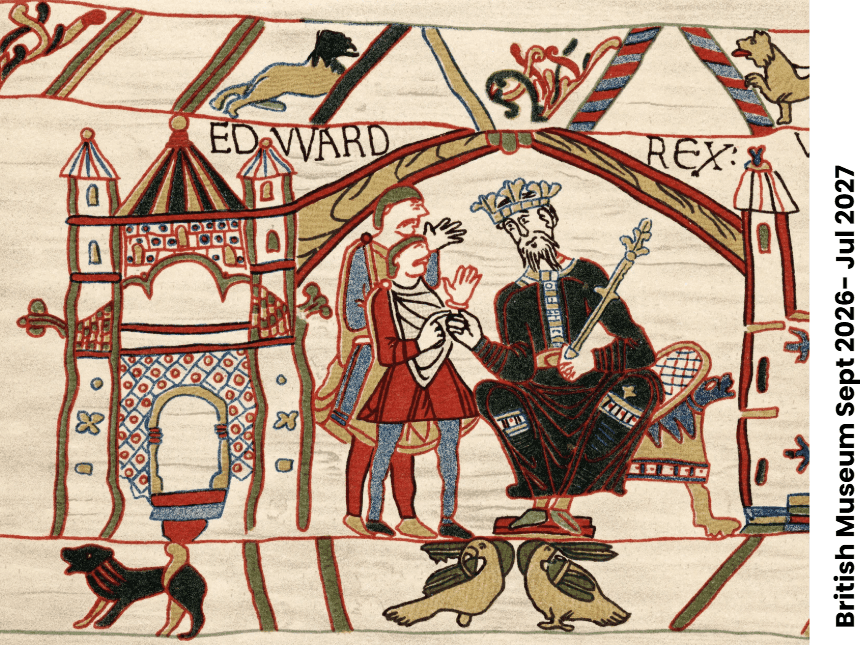 EDVVARD REX:
British Museum Sept 2026– Jul 2027